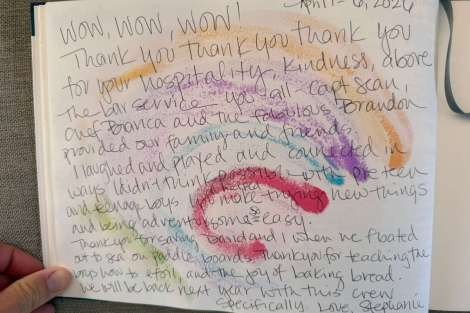 April 1-6, 2024
WOW, WOW, WOW!
Thank you thank you thank you
for your hospitality, kindness, above
the bar service - you all - capt sean,
chef Bianca and the fabulous Brandon
provided our family and friends.
I laughed and played and connected in
ways I didn't think possible with preteen
and teenage boys make trying new things
and being adventuresome easy.
Thank you for saving band and I when we floated
out to sea on paddle boards. Thank you for teaching the
boys how to efoil, and the joy of baking bread.
We will be back next year with this crew
specifically. Love, Stephanie